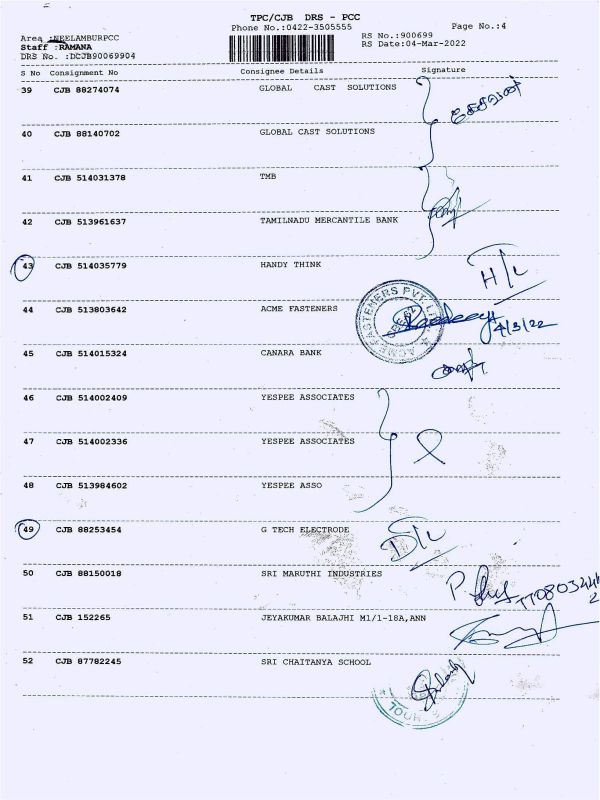 TPC/CJB DRS - PCC
Phone No.:0422-3505555
Page No.:4
Area :NEELAMBURPCC
RS No.:900699
Staff :RAMANA
RS Date:04-Mar-2022
DRS No. :DCJB90069904
S No Consignment No Consignee Details Signature
39 CJB 88274074 GLOBAL CAST SOLUTIONS
40 CJB 88140702 GLOBAL CAST SOLUTIONS
41 CJB 514031378 TMB
42 CJB 513961637 TAMILNADU MERCANTILE BANK
43 CJB 514035779 HANDY THINK H/L
44 CJB 513803642 ACME FASTENERS
ACME FASTENERS PVT. LTD.
4/3/22
45 CJB 514015324 CANARA BANK
46 CJB 514002409 YESPEE ASSOCIATES
47 CJB 514002336 YESPEE ASSOCIATES
48 CJB 513984602 YESPEE ASSO
49 CJB 88253454 G TECH ELECTRODE D/L
50 CJB 88150018 SRI MARUTHI INDUSTRIES
51 CJB 152265 JEYAKUMAR BALAJHI M1/1-18A,ANN
52 CJB 87782245 SRI CHAITANYA SCHOOL